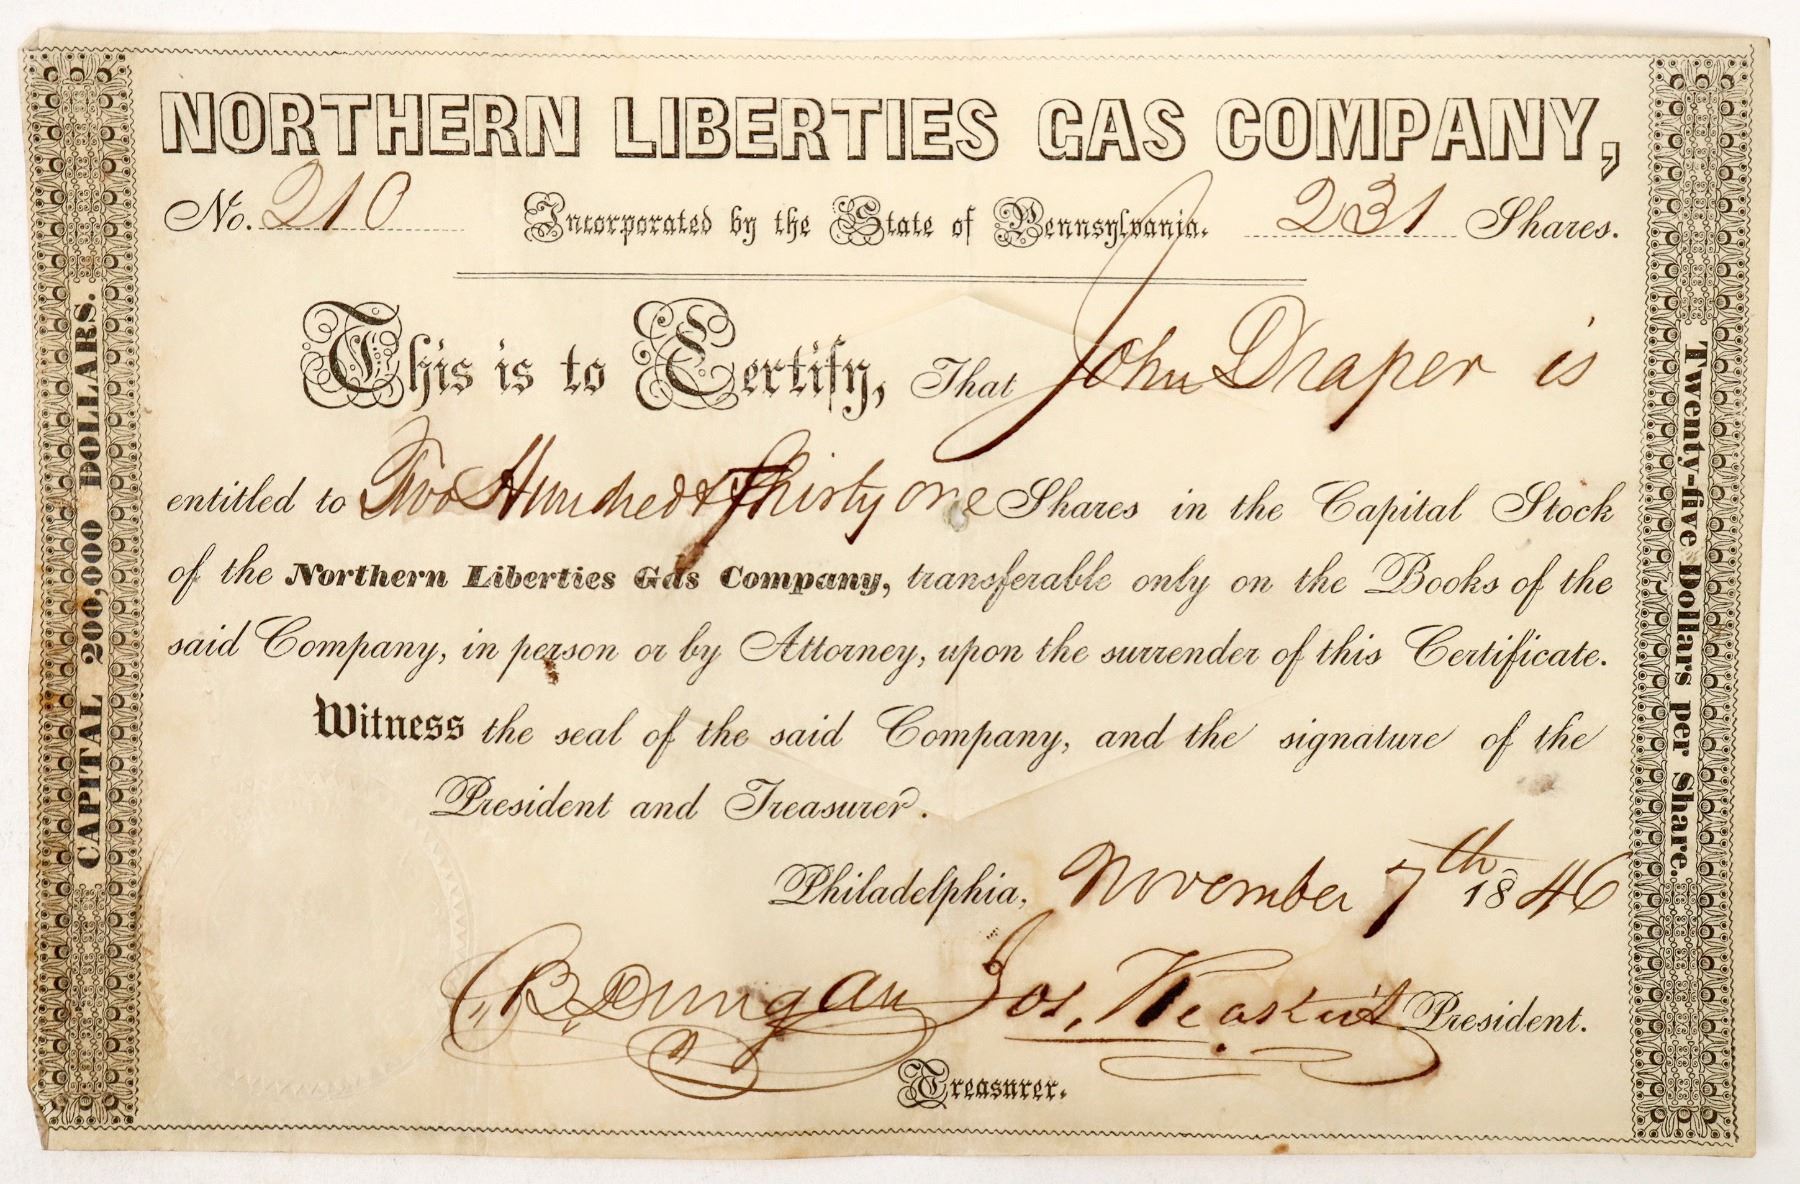 NORTHERN LIBERTIES GAS COMPANY,
No. 210 Incorporated by the State of Pennsylvania. 231 Shares.
This is to Certify, That John Draper is
entitled to Two Hundred & Thirty one Shares in the Capital Stock
of the Northern Liberties Gas Company, transferable only on the Books of the
said Company, in person or by Attorney, upon the surrender of this Certificate.
Witness the seal of the said Company, and the signature of the
President and Treasurer.
Philadelphia, November 7th 1846
B. Dungan Jos. President.
Treasurer.
CAPITAL 200,000 DOLLARS.
Twenty-five Dollars per Share.